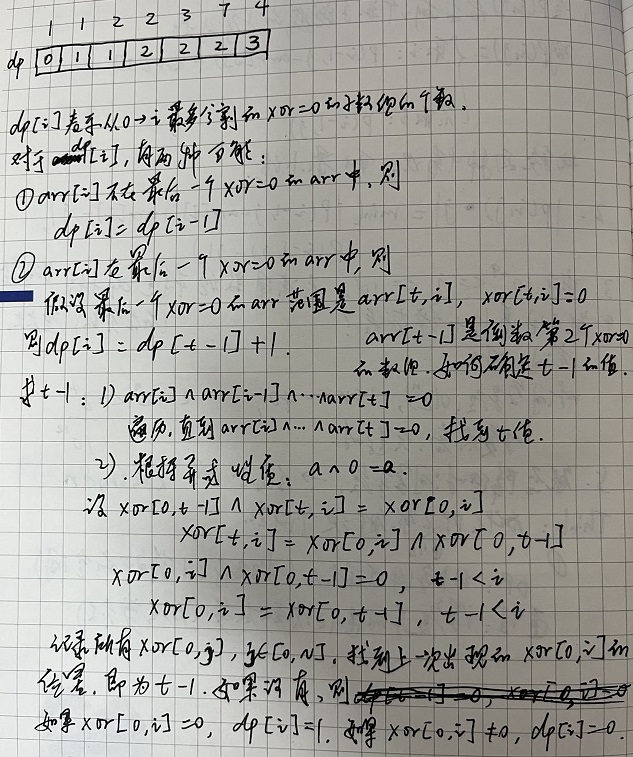 1 1 2 2 3 7 4
dp 0 1 1 2 2 2 2 3
dp[i]表示从0→i最多分割的xor=0的子数组的个数.
对于dp[i],有两种可能:
①arr[i]不在最后一个xor=0的arr中,则
dp[i]=dp[i-1]
②arr[i]在最后一个xor=0的arr中,则
假设最后一个xor=0的arr范围是arr[t,i], xor[t,i]=0
则dp[i]=dp[t-1]+1. arr[t-1]是倒数第2个xor=0
的数组.如何确定t-1的值.
求t-1: 1) arr[i]∧arr[i-1]∧…∧arr[t]=0
遍历,直到arr[i]∧…∧arr[t]=0,找到t值.
2).根据异或性质: a∧0=a.
设xor[0,t-1]∧xor[t,i]=xor[0,i]
xor[t,i]=xor[0,i]∧xor[0,t-1]
xor[0,i]∧xor[0,t-1]=0, t-1<i
xor[0,i]=xor[0,t-1], t-1<i
记录所有xor[0,j],j∈[0,N].找到上一次出现的xor[0,i]的
位置.即为t-1.如果没有,则
如果xor[0,i]=0, dp[i]=1.如果xor[0,i]≠0, dp[i]=0.